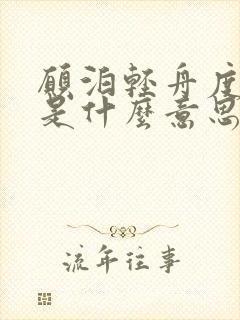 願泊輕舟度
是什麼意思
流年往事